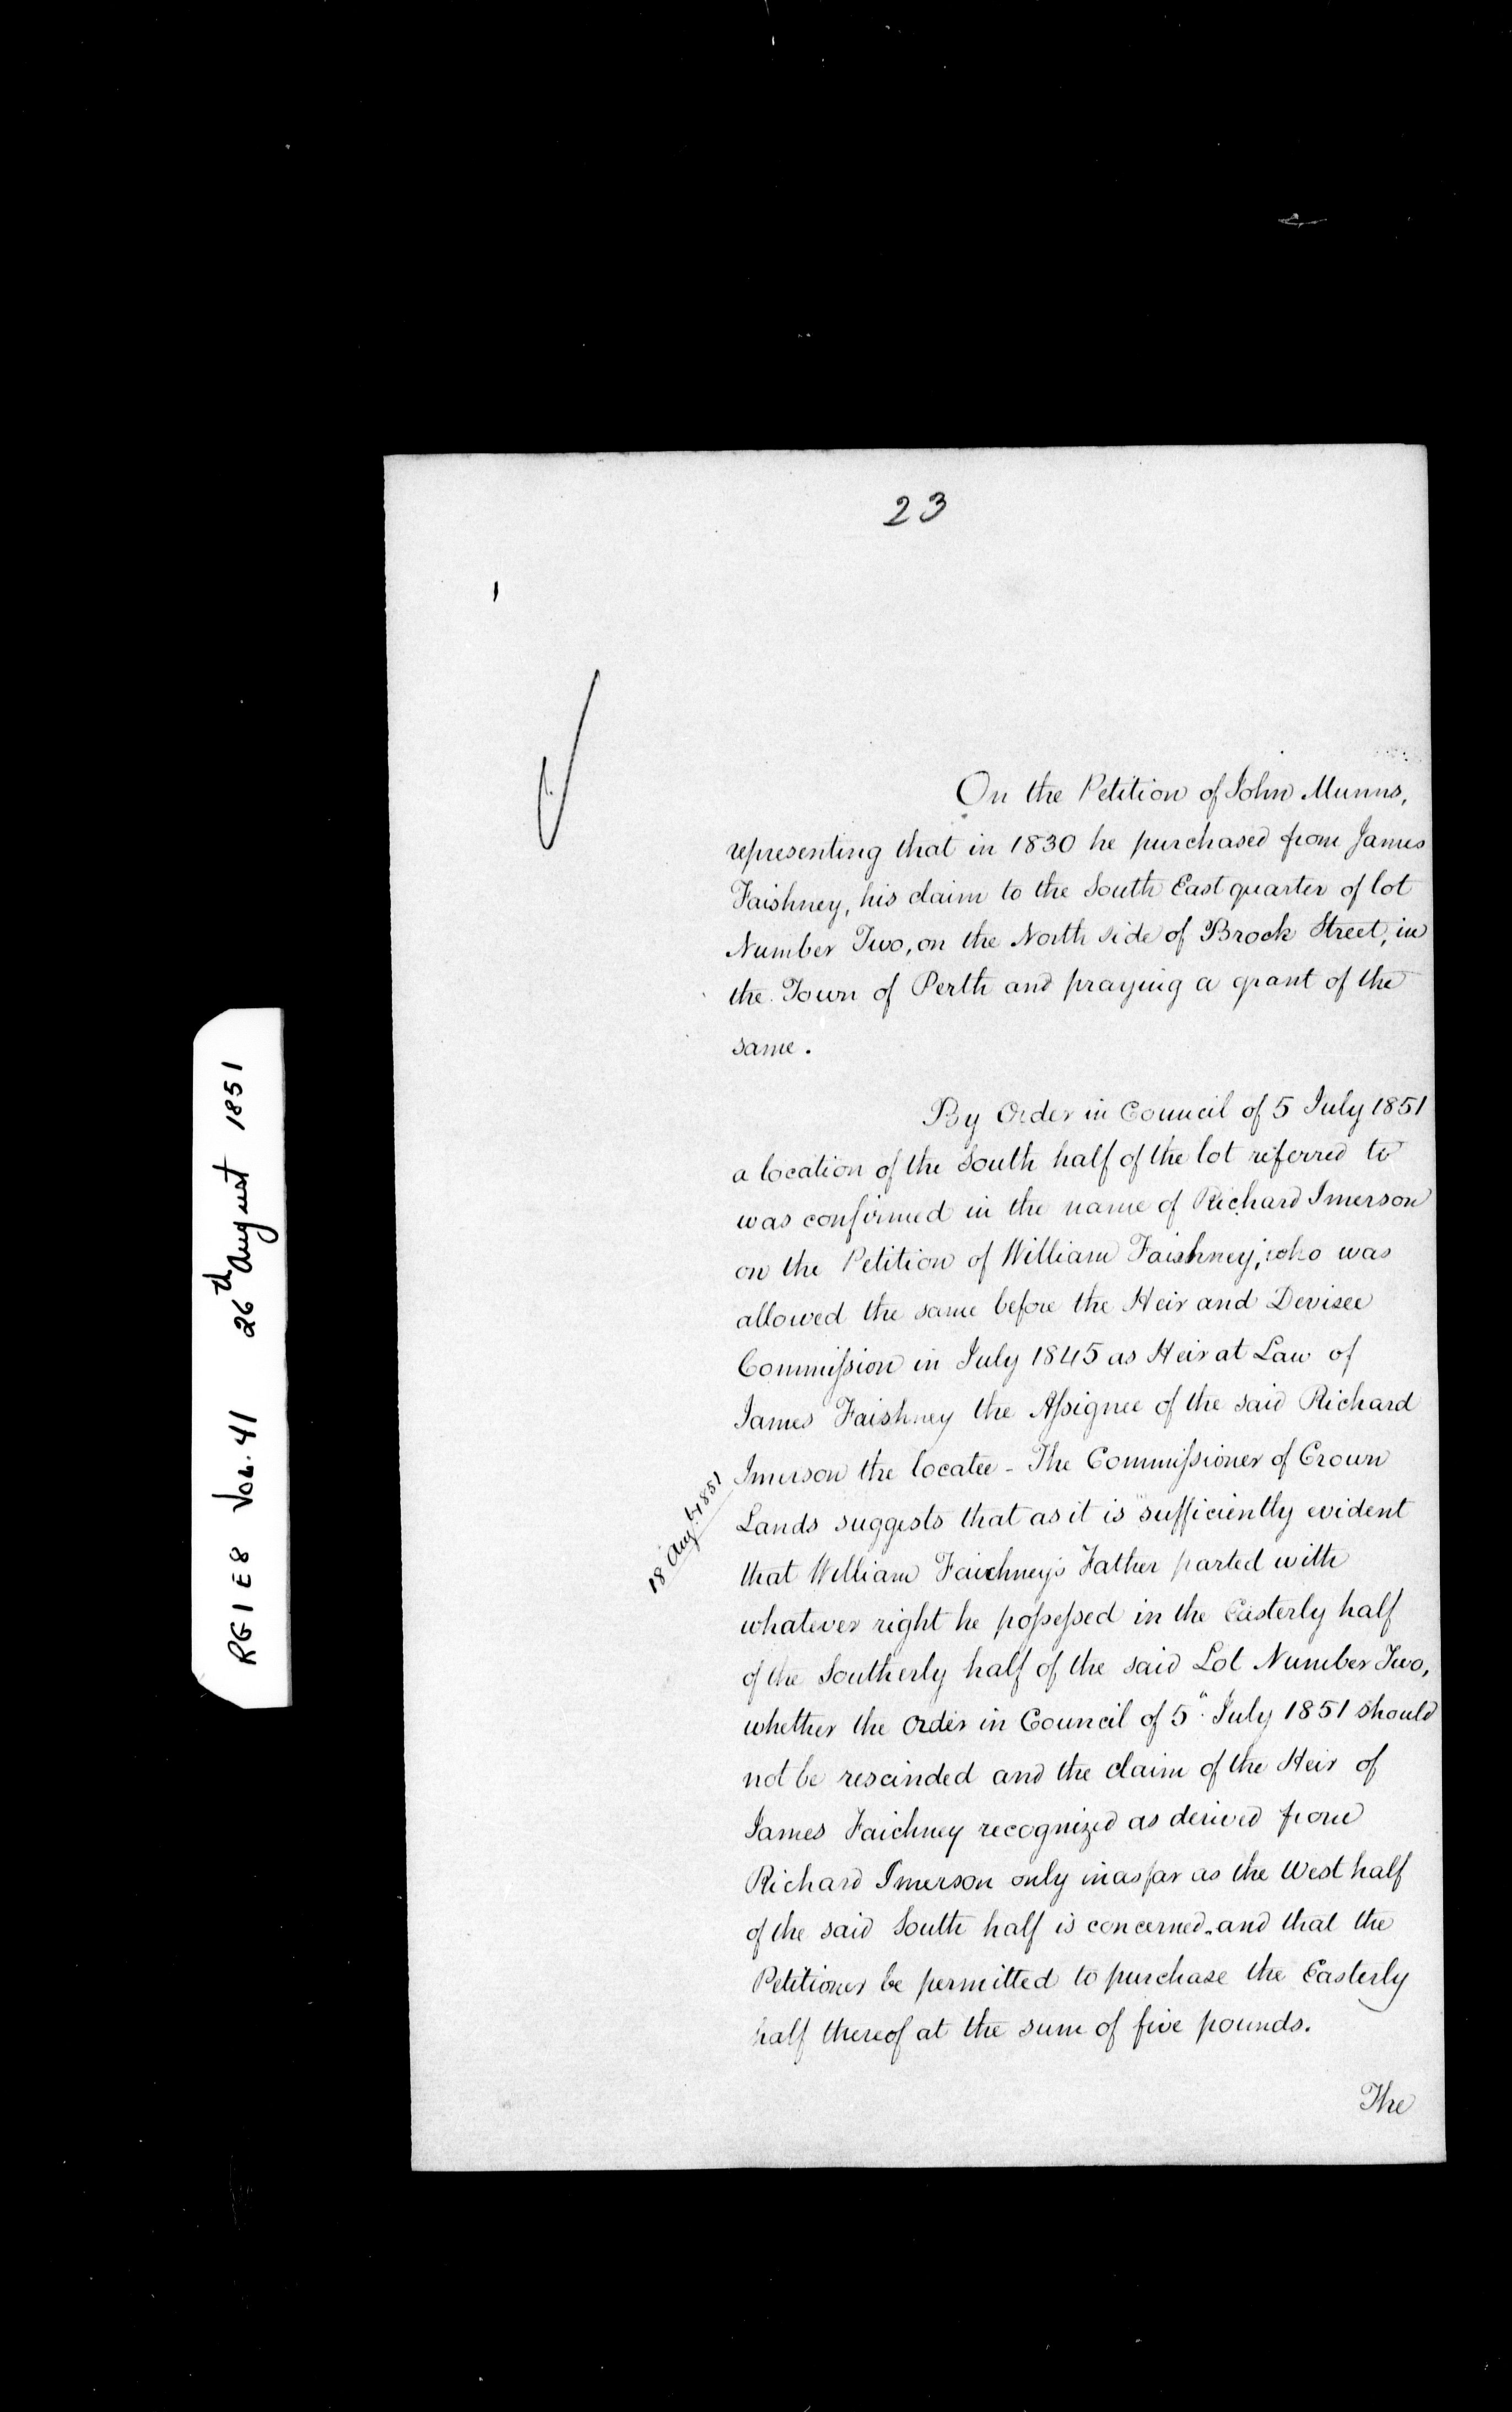 23
On the Petition of John Munns,
representing that in 1830 he purchased from James
Faishney, his claim to the South East quarter of lot
Number Two, on the North side of Brock Street, in
the Town of Perth and praying a grant of the
same.
By Order in Council of 5 July 1851
a location of the South half of the lot referred to
was confirmed in the name of Richard Imerson
on the Petition of William Faishney, who was
allowed the same before the Heir and Devisee
Commission in July 1845 as Heir at Law of
James Faishney the Assignee of the said Richard
Imerson the locatee - The Commissioner of Crown
18 Augt 1851
Lands suggests that as it is "sufficiently evident
that William Faichney's Father parted with
whatever right he possessed in the Easterly half
of the Southerly half of the said Lot Number Two,
whether the Order in Council of 5" July 1851 should
not be rescinded and the claim of the Heir of
James Faichney recognized as derived from
Richard Imerson only inasfar as the West half
of the said South half is concerned, and that the
Petitioner be permitted to purchase the Easterly
half thereof at the sum of five pounds.
The
RG 1 E8 Vol. 41 26th August 1851